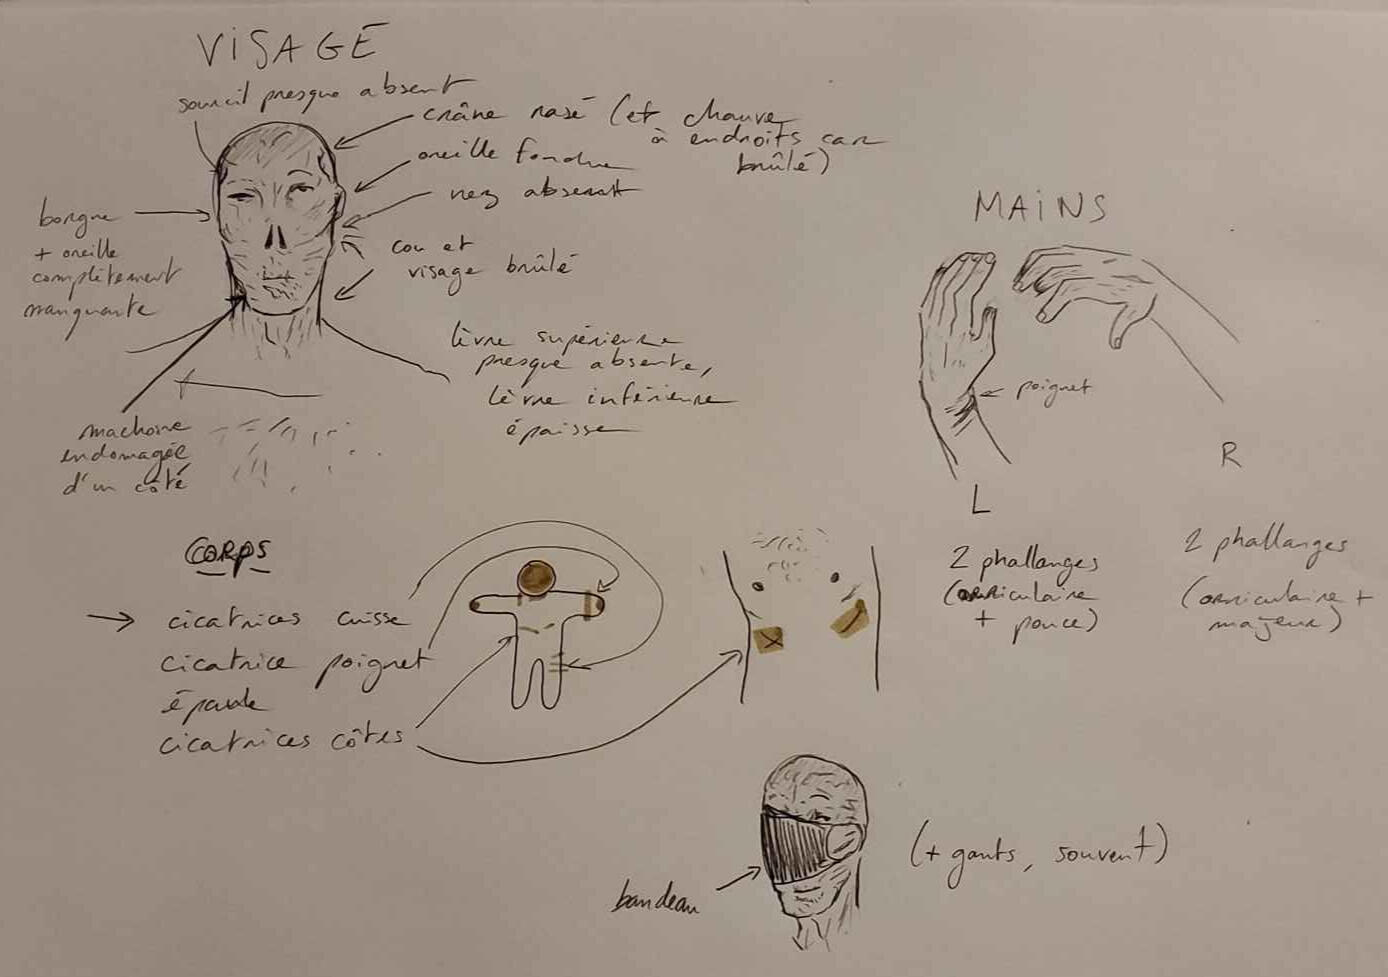 VISAGE
sourcil presque absent
crâne rasé (et chauve
à endroits car
brûlé)
oreille fondue
nez absent
borgne
+ oreille
complètement
manquante
cou et
visage brûlé
lèvre supérieure
presque absente,
lèvre inférieure
épaisse
machoire
endomagée
d'un côté
MAINS
poignet
L
R
2 phallanges
(auriculaire
+ pouce)
2 phallanges
(auriculaire +
majeur)
CORPS
→ cicatrices cuisse
cicatrice poignet
épaule
cicatrices côtes
bandeau
(+ gants, souvent)